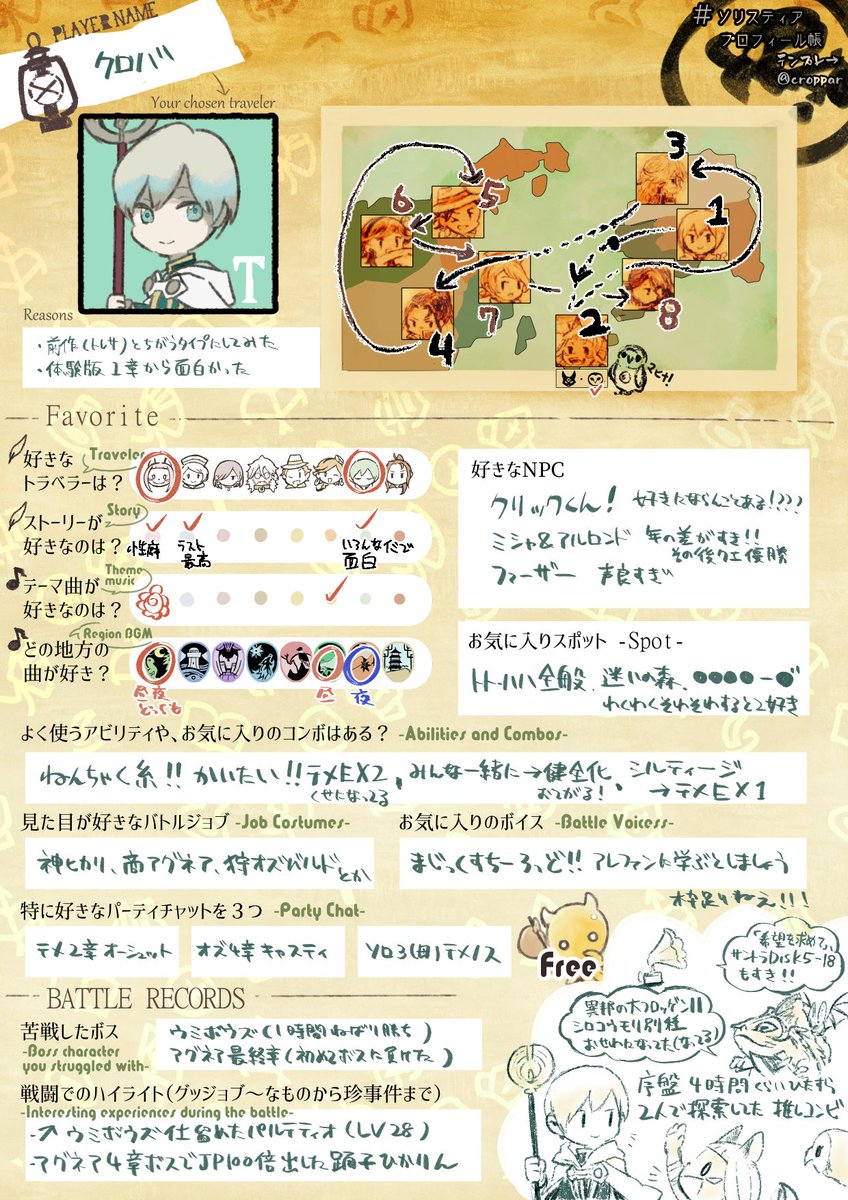 PLAYER NAME
クロバリ
#ソリスティア
プロフィール帳
テンプレ→
@croppar
Your chosen traveler
T
Reasons
・前作(トレサ)とちがうタイプにしてみた
・体験版1章から面白かった
3
1
6
5
7
2
8
4
マヒナ!
Favorite
好きな
トラベラーは?
Traveler
ストーリーが
好きなのは?
Story
性癖
ラスト
最高
いろんなイミで
面白
テーマ曲が
好きなのは?
Theme
music
どの地方の
曲が好き?
Region BGM
昼夜
どっちも
昼
夜
好きなNPC
クリックくん! 好きにならんことある!???
ミシャ&アルロンド 年の差がすき!!
その後クエ優勝
ファーザー 声良すぎ
お気に入りスポット -Spot-
トト・ハハ全般、迷いの森、
わくわくそわそわするとこ好き
よく使うアビリティや、お気に入りのコンボはある? -Abilities and Combos-
ねんちゃく糸!! かいたい!! テメEX2、みんな一緒に→健全化、シルティージ
くせになってる
おてがる!
→テメEX1
見た目が好きなバトルジョブ -Job Costumes-
神ヒカリ、商アグネア、狩オズバルド とか
お気に入りのボイス -Battle Voicess-
まじっくすちーるっど!! アレファンに学ぶとしましょう
枠足りねえ!!!
特に好きなパーティチャットを3つ -Party Chat-
テメ2章オーシュット
オズ4章キャスティ
ソロ3(日)テメノス
Free
「希望を求めて」
サントラDisk5-18
もすき!!
異邦の木フロッゲンII
シロコウモリ別種
おせわになってた(なってる)
序盤4時間ぐらいひたすら
2人で探索してた 推しコンビ
BATTLE RECORDS
苦戦したボス
-Boss character
you struggled with-
ウミボウズ(1時間ねばり勝ち)
アグネア最終章(初めてボスに負けた)
戦闘でのハイライト(グッジョブ～なものから珍事件まで)
-Interesting experiences during the battle-
・↗ウミボウズ仕留めたパルテティオ(LV28)
・アグネア4章ボスでJP100倍出した踊子ひかりん